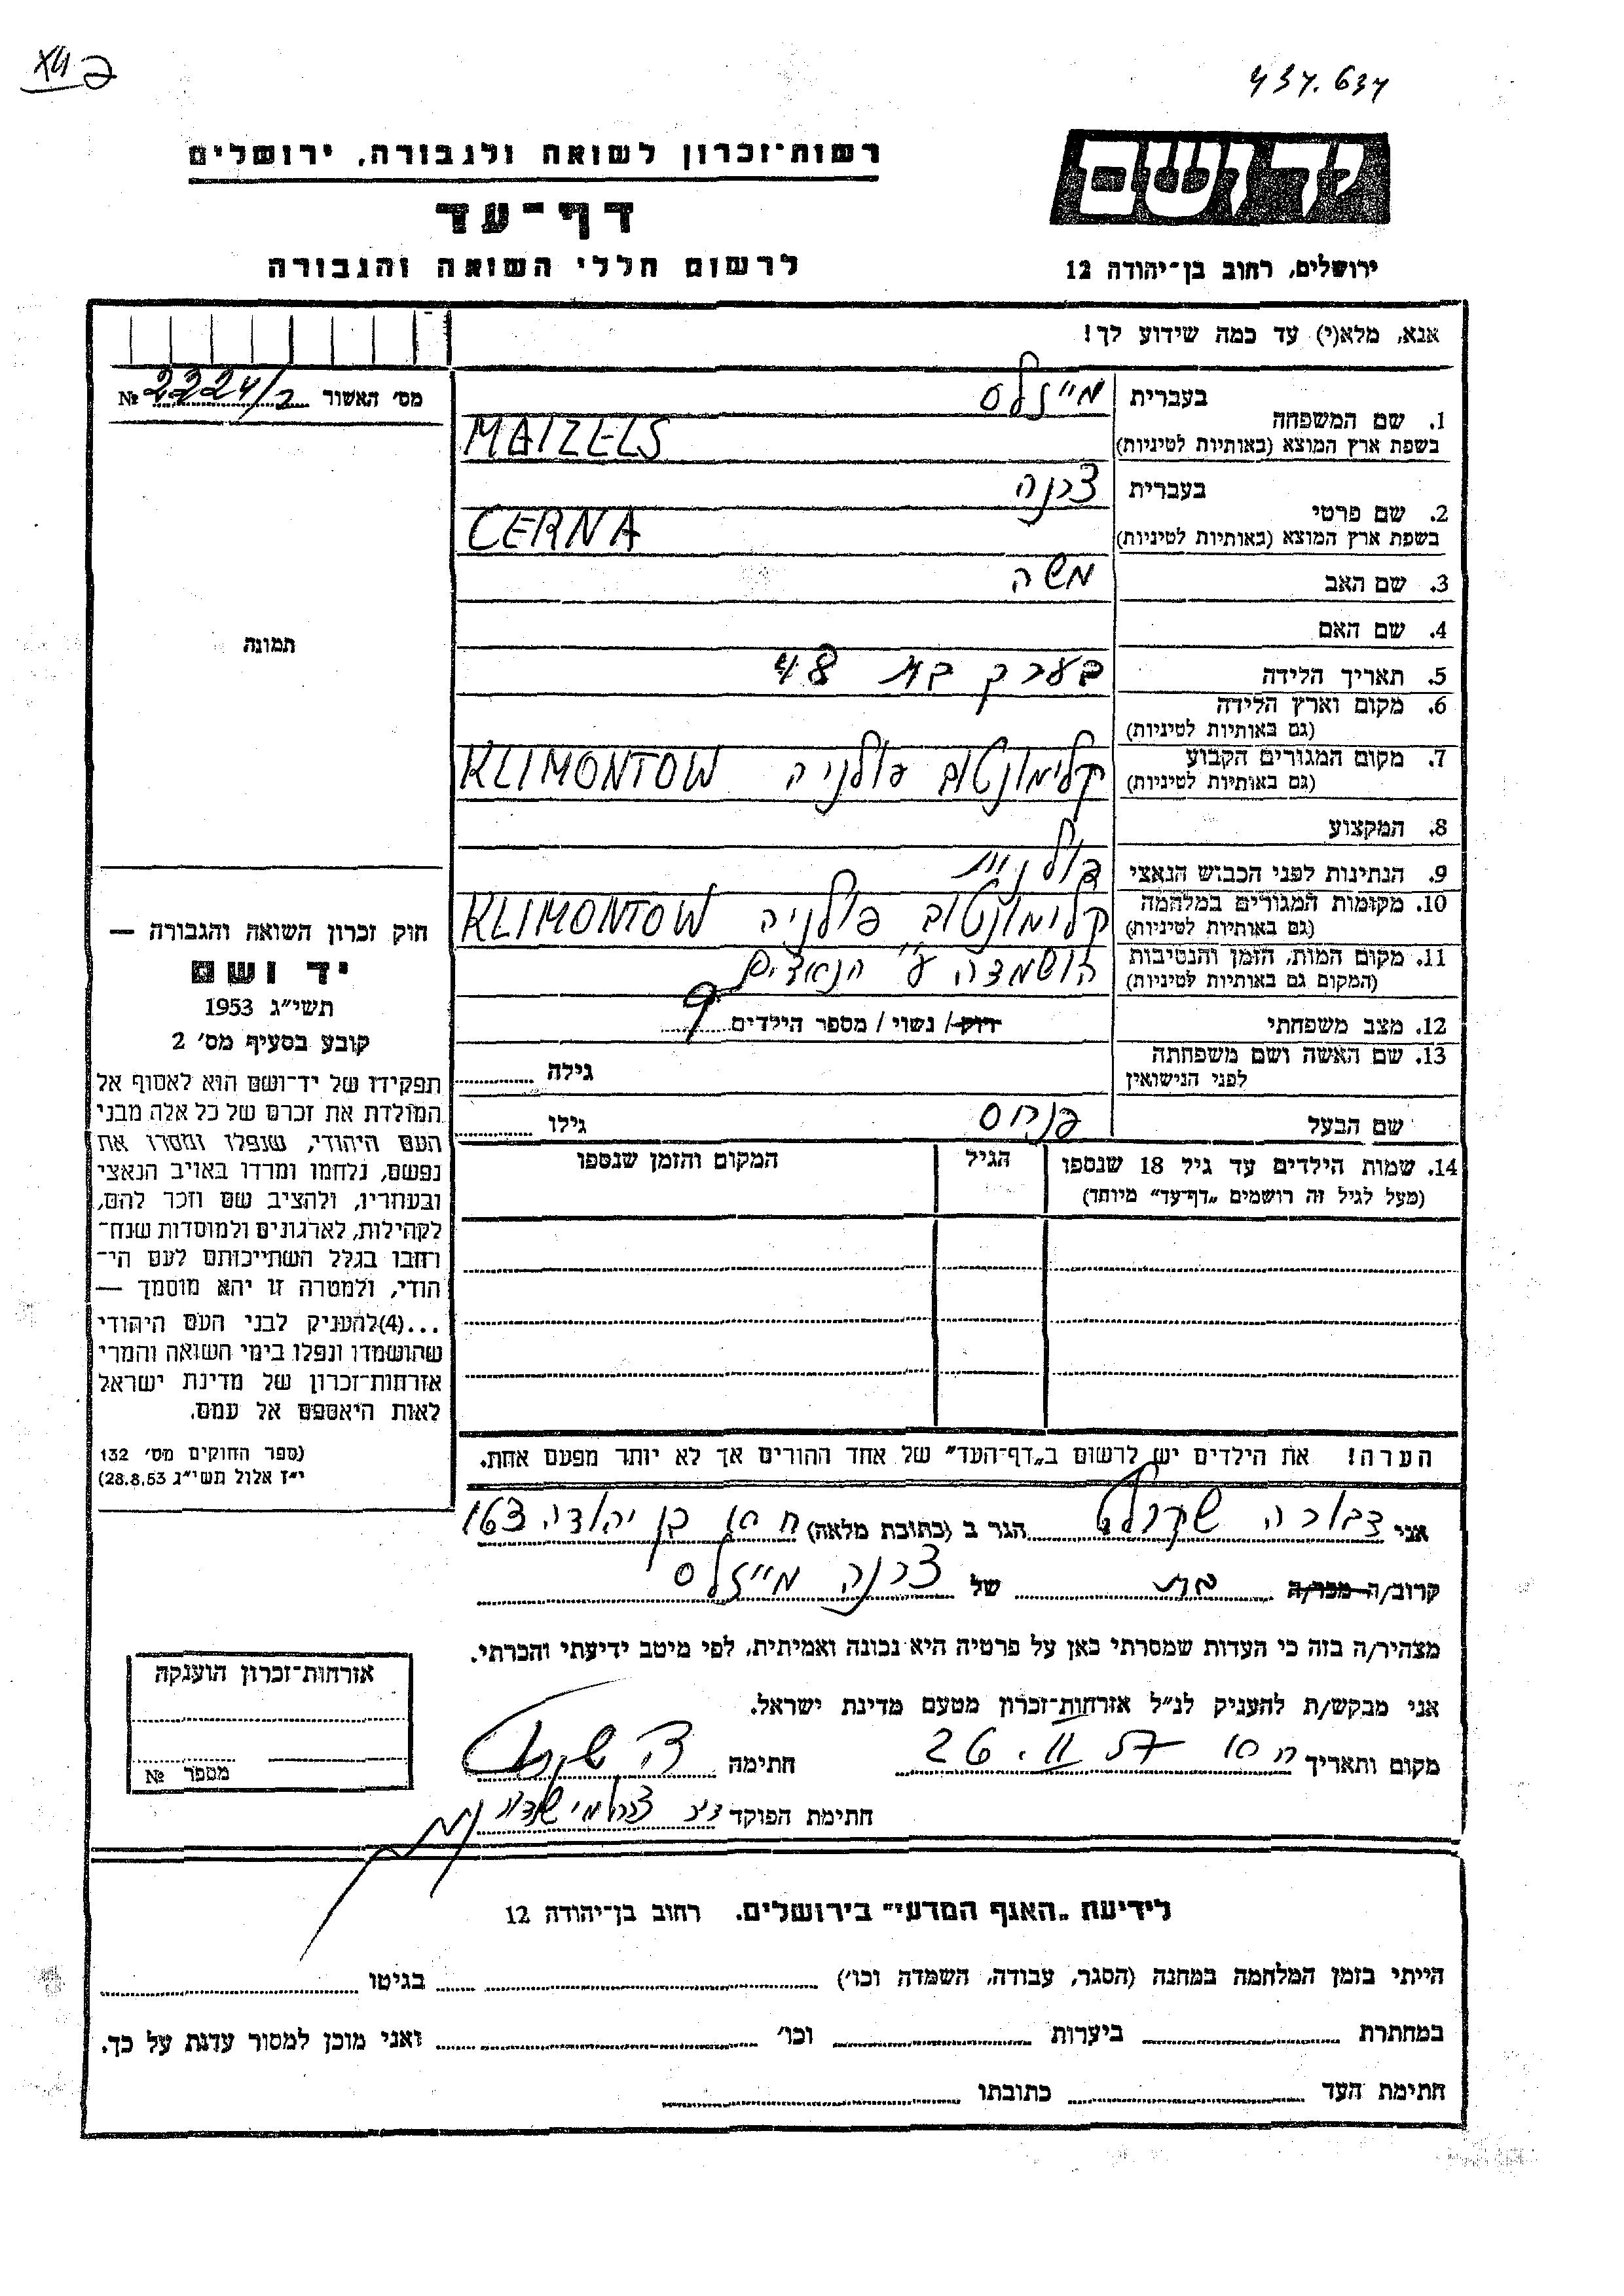 437.634
רשות־זכרון לשואה ולגבורה, ירושלים
דף־עד
לרשום חללי השואה והגבורה
יד ושם
ירושלים, רחוב בן־יהודה 12
אנא, מלא(י) עד כמה שידוע לך!
מס׳ האשור № 2224/2
1. שם המשפחה בעברית מייזלס
בשפת ארץ המוצא (באותיות לטיניות) MAIZELS
2. שם פרטי בעברית צרנה
בשפת ארץ המוצא (באותיות לטיניות) CERNA
3. שם האב משה
4. שם האם
5. תאריך הלידה בערך בת 48
6. מקום וארץ הלידה
(גם באותיות לטיניות)
7. מקום המגורים הקבוע קלימונטוב פולניה KLIMONTOW
(גם באותיות לטיניות)
8. המקצוע
9. הנתינות לפני הכבוש הנאצי פולנית
10. מקומות המגורים במלחמה קלימונטוב פולניה KLIMONTOW
(גם באותיות לטיניות)
11. מקום המות, הזמן והנסיבות הושמדה ע״י הנאצים
(המקום גם באותיות לטיניות)
12. מצב משפחתי רוק/ נשוי/ מספר הילדים 9
13. שם האשה ושם משפחתה גילה
לפני הנישואין
שם הבעל פנחס גילו
14. שמות הילדים עד גיל 18 שנספו הגיל המקום והזמן שנספו
(מעל לגיל זה רושמים „דף־עד” מיוחד)
הערה! את הילדים יש לרשום ב„דף־העד” של אחד ההורים אך לא יותר מפעם אחת.
תמונה
חוק זכרון השואה והגבורה —
יד ושם
תשי״ג 1953
קובע בסעיף מס׳ 2
תפקידו של יד־ושם הוא לאסוף אל
המולדת את זכרם של כל אלה מבני
העם היהודי, שנפלו ומסרו את
נפשם, נלחמו ומרדו באויב הנאצי
ובעוזריו, ולהציב שם וזכר להם,
לקהילות, לארגונים ולמוסדות שנח־
רחבו בגלל השתייכותם לעם הי־
הודי, ולמטרה זו יהא מוסמך —
...(4) להעניק לבני העם היהודי
שהושמדו ונפלו בימי השואה והמרי
אזרחות־זכרון של מדינת ישראל
לאות היאספם אל עמם.
(ספר החוקים מס׳ 132
י״ז אלול תשי״ג 28.8.53)
אני דבורה הגר ב (כתובת מלאה) בן יהודה 163
קרוב/ה מכר/ה בת של צרנה מייזלס
מצהיר/ה בזה כי העדות שמסרתי כאן על פרטיה היא נכונה ואמיתית, לפי מיטב ידיעתי והכרתי.
אני מבקש/ת להעניק לנ״ל אזרחות־זכרון מטעם מדינת ישראל.
מקום ותאריך 26.II.57 חתימה
חתימת הפוקד
אזרחות־זכרון הוענקה
מספר №
לידיעת „האגף המדעי” בירושלים, רחוב בן־יהודה 12
הייתי בזמן המלחמה במחנה (הסגר, עבודה, השמדה וכו׳) בגיטו
במחתרת ביערות וכו׳ ואני מוכן למסור עדות על כך.
חתימת העד כתובתו